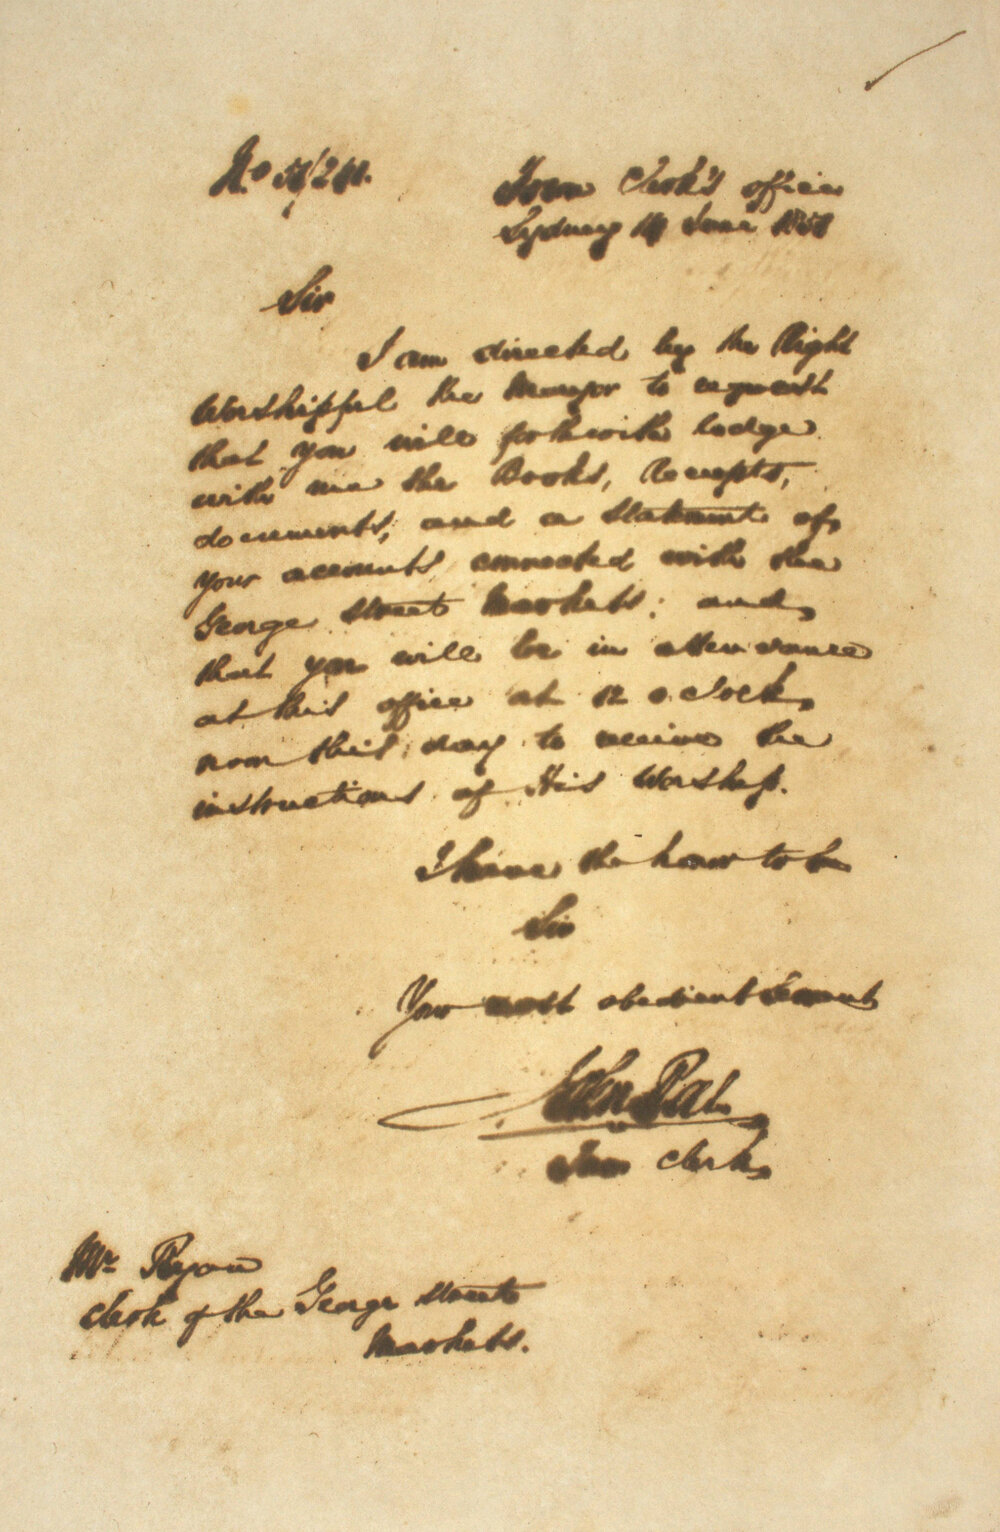 Town Clerk's office
Sydney June 1851
Sir
I am directed by the Right
Worshipful the Mayor to request
that you will forthwith lodge
with me the Books, Receipts,
documents, and a Statement of
your accounts connected with the
George Street Markets; and
that you will be in attendance
at this office at 12 o.clock
noon this day to receive the
instructions of His Worship.
I have the honor to be
Sir
Your most obedient Servant
John Rae
Town Clerk
Mr Ryan
Clerk of the George Street
Markets.